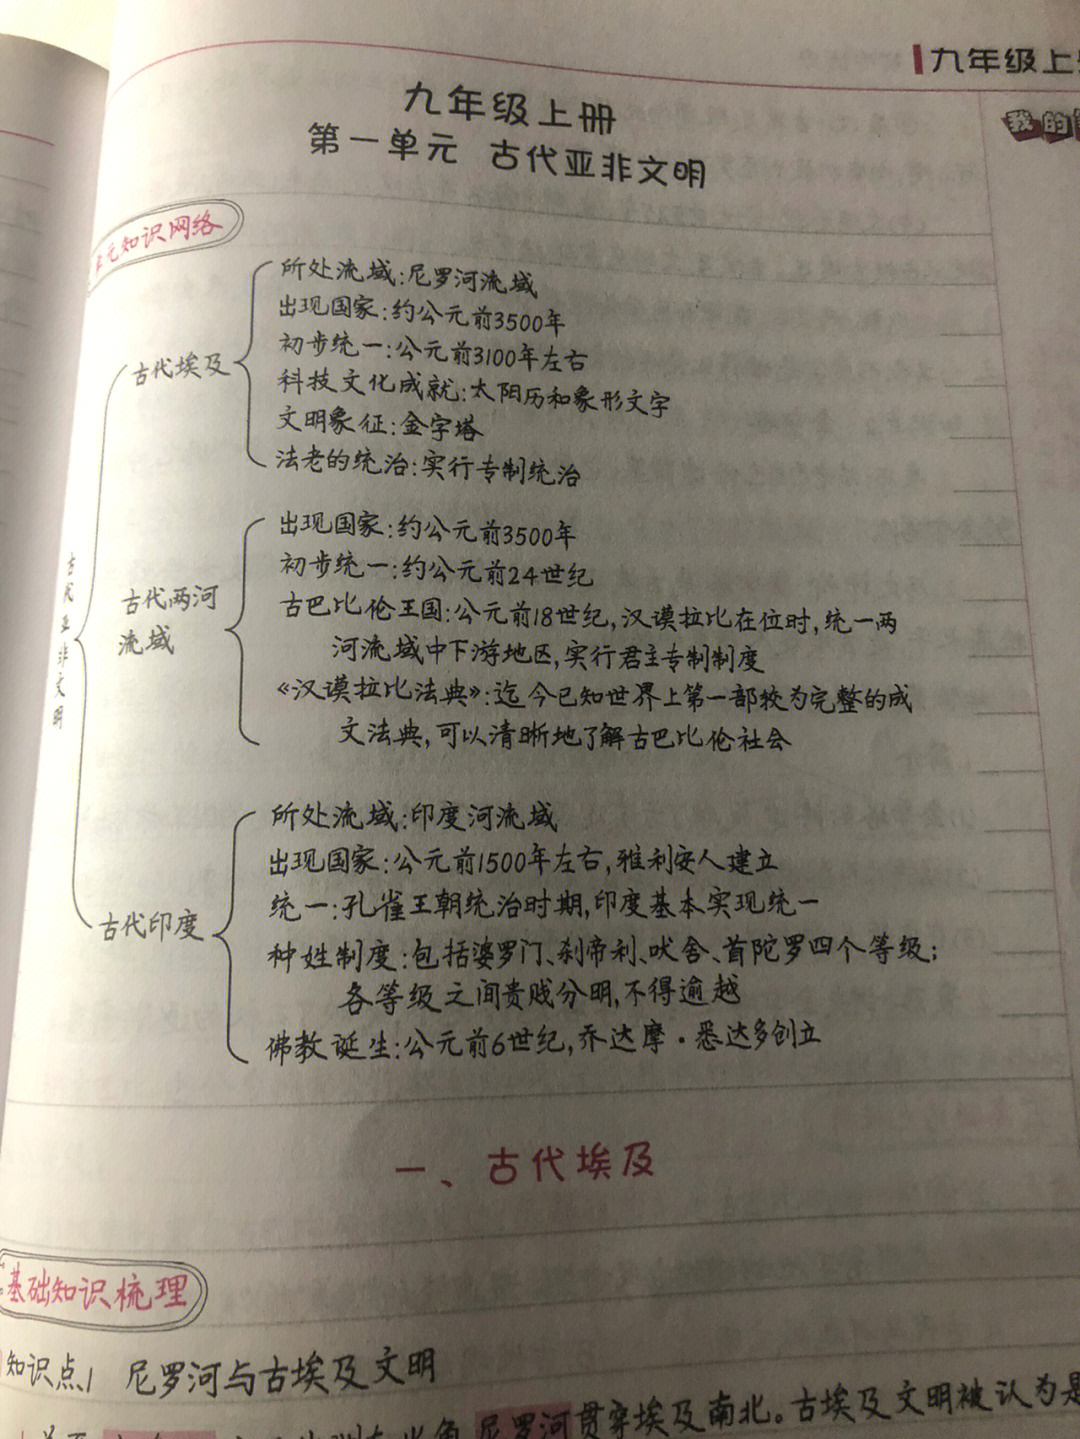 九年级上
我的
九年级上册
第一单元 古代亚非文明
单元知识网络
古代亚非文明
古代埃及
所处流域:尼罗河流域
出现国家:约公元前3500年
初步统一:公元前3100年左右
科技文化成就:太阳历和象形文字
文明象征:金字塔
法老的统治:实行专制统治
古代两河
流域
出现国家:约公元前3500年
初步统一:约公元前24世纪
古巴比伦王国:公元前18世纪,汉谟拉比在位时,统一两
河流域中下游地区,实行君主专制制度
《汉谟拉比法典》:迄今已知世界上第一部较为完整的成
文法典,可以清晰地了解古巴比伦社会
古代印度
所处流域:印度河流域
出现国家:公元前1500年左右,雅利安人建立
统一:孔雀王朝统治时期,印度基本实现统一
种姓制度:包括婆罗门、刹帝利、吠舍、首陀罗四个等级;
各等级之间贵贱分明,不得逾越
佛教诞生:公元前6世纪,乔达摩·悉达多创立
一、古代埃及
基础知识梳理
知识点1 尼罗河与古埃及文明
尼罗河贯穿埃及南北。古埃及文明被认为是